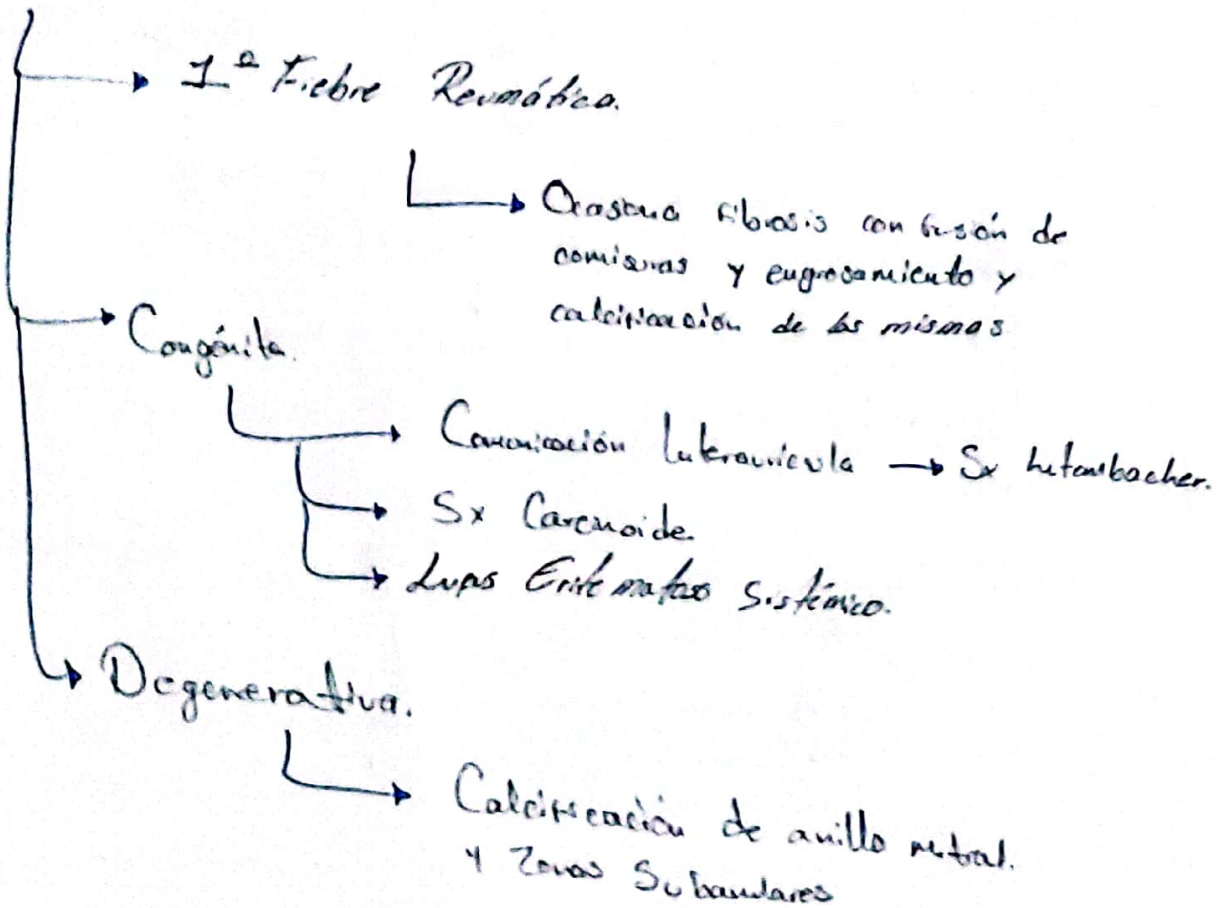 1ª Fiebre Reumática.
Ocasiona fibrosis con fusión de
comisuras y engrosamiento y
calcificación de las mismas
Congénita.
Comunicación Interaurícula → Sx Lutembacher.
Sx Carcinoide.
Lupus Eritematoso Sistémico.
Degenerativa.
Calcificación de anillo mitral.
y Zonas Subanulares